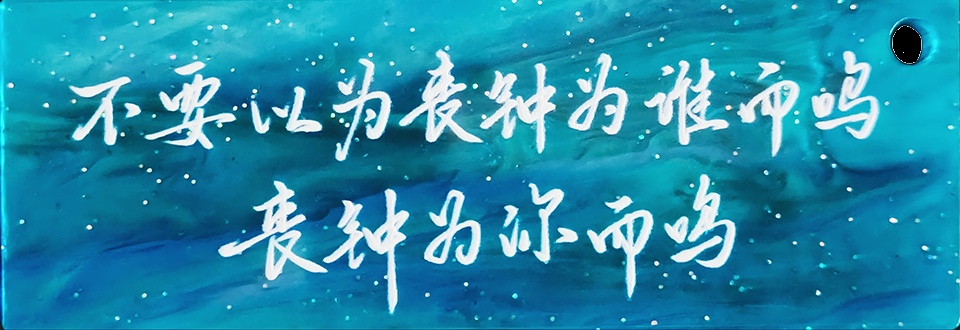 不要以为丧钟为谁而鸣
丧钟为你而鸣